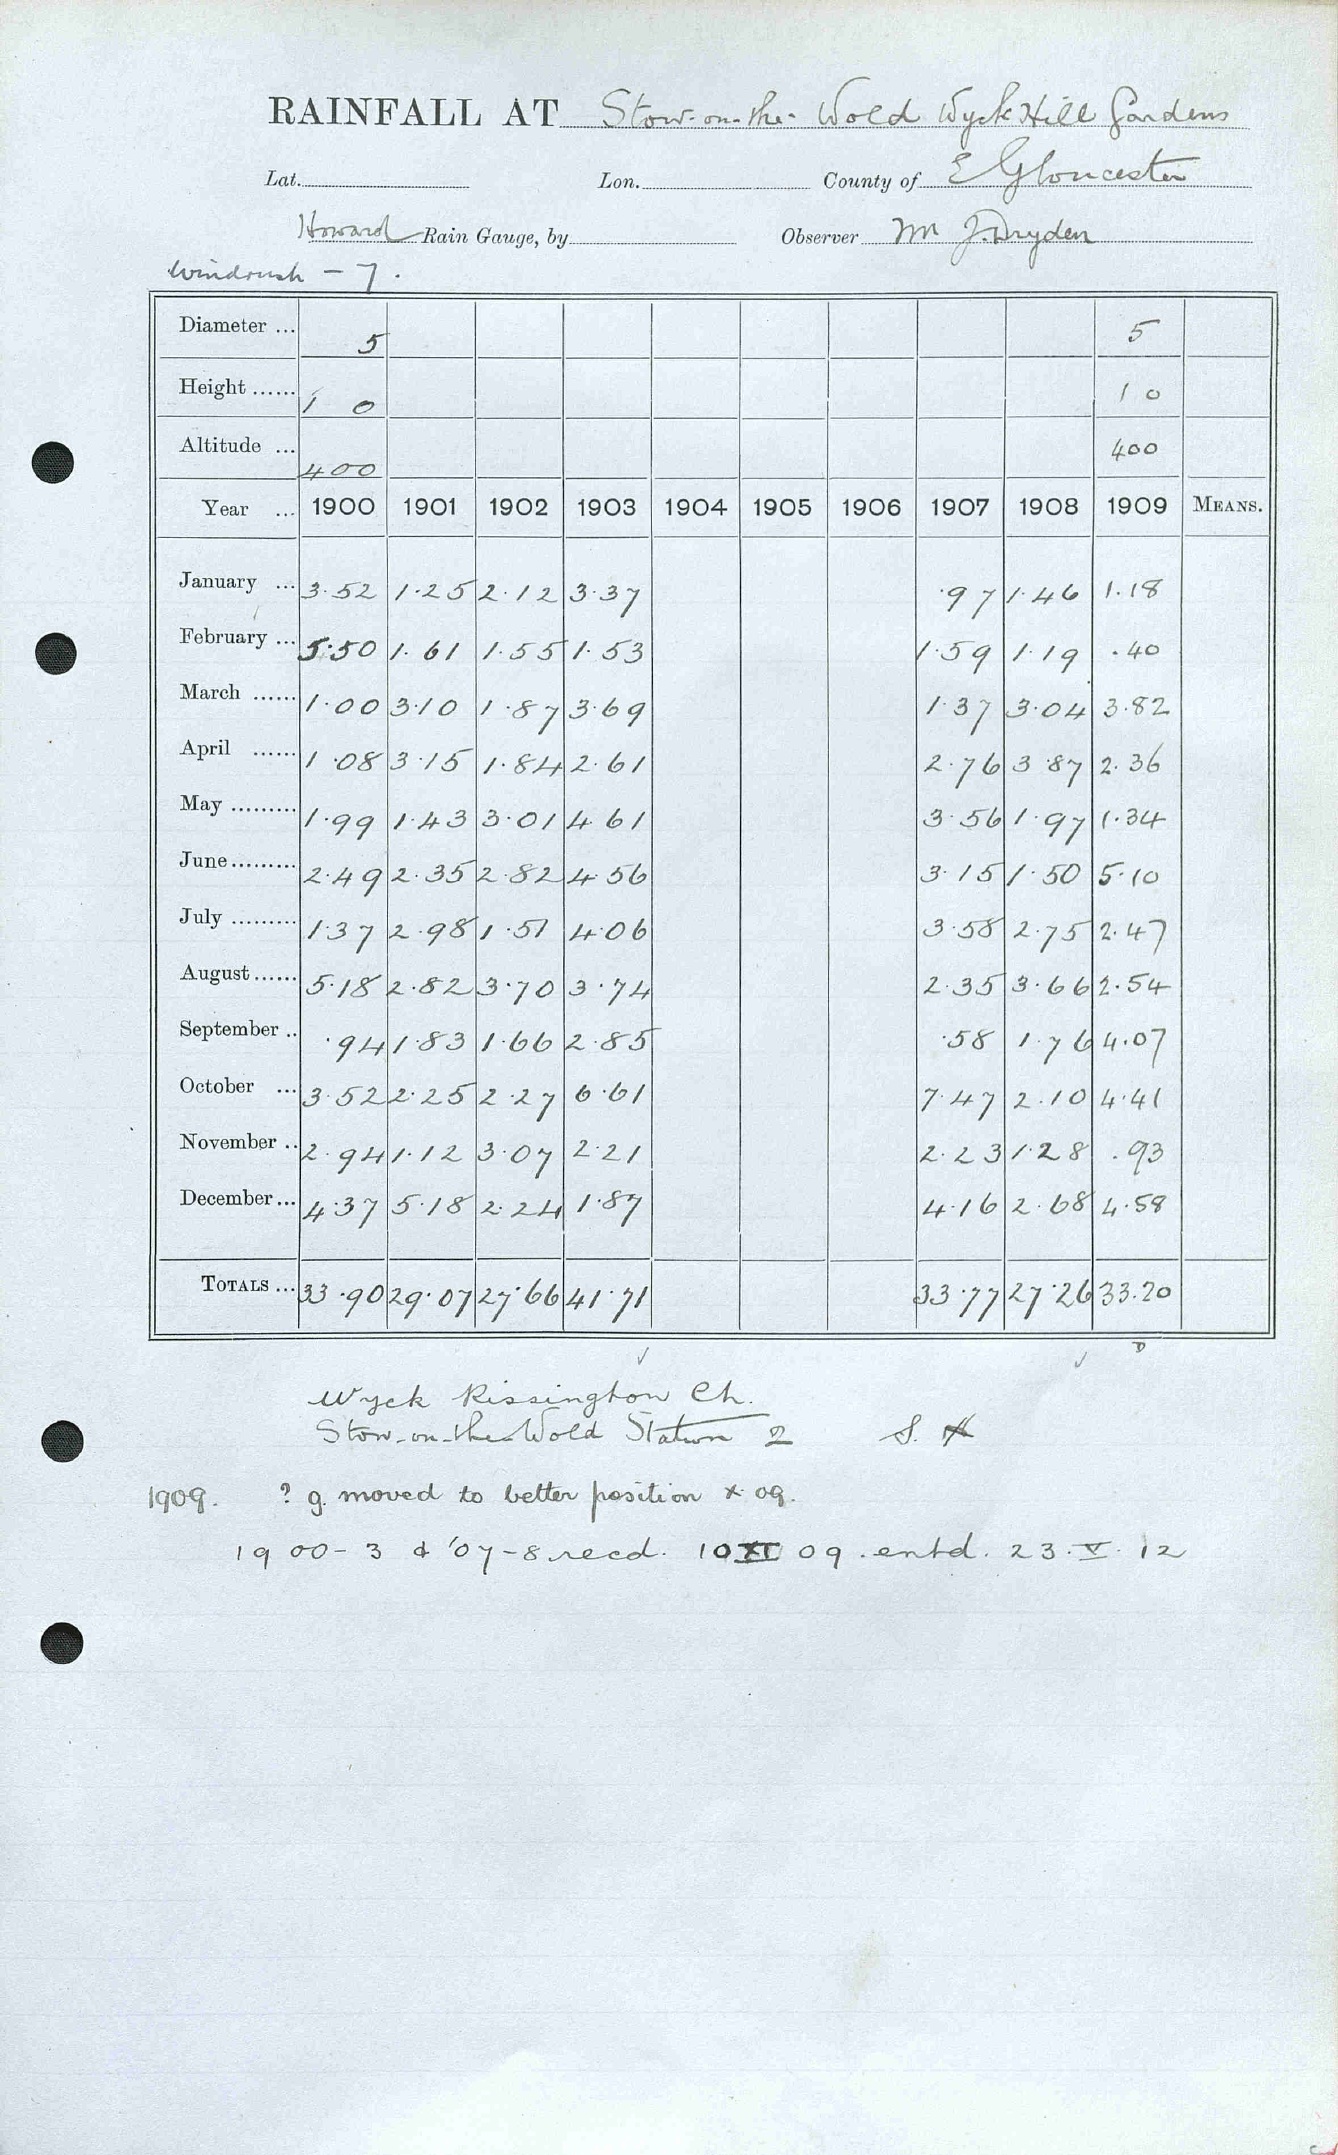 RAINFALL AT Stow-on-the-Wold Wyck Hill Gardens
Lat. Lon. County of E Gloucester
Howard Rain Gauge, by Observer Mr J. Dryden
Windrush - 7.
Diameter ... 5 5
Height ...... 1 0 1 0
Altitude ... 400 400
Year ... 1900 1901 1902 1903 1904 1905 1906 1907 1908 1909 MEANS.
January ... 3.52 1.25 2.12 3.37 .97 1.46 1.18
February ... 5.50 1.61 1.55 1.53 1.59 1.19 .40
March ...... 1.00 3.10 1.87 3.69 1.37 3.04 3.82
April ...... 1.08 3.15 1.84 2.61 2.76 3.87 2.36
May ......... 1.99 1.43 3.01 4.61 3.56 1.97 1.34
June ......... 2.49 2.35 2.82 4.56 3.15 1.50 5.10
July ......... 1.37 2.98 1.51 4.06 3.58 2.75 2.47
August ...... 5.18 2.82 3.70 3.74 2.35 3.66 2.54
September .. .94 1.83 1.66 2.85 .58 1.76 4.07
October ... 3.52 2.25 2.27 6.61 7.47 2.10 4.41
November .. 2.94 1.12 3.07 2.21 2.23 1.28 .93
December ... 4.37 5.18 2.24 1.87 4.16 2.68 4.58
TOTALS ... 33.90 29.07 27.66 41.71 33.77 27.26 33.20
✓ ✓ D
Wyck Rissington Ch.
Stow-on-the-Wold Station 2 S.
1909. ? g. moved to better position x 09.
1900-3 & '07-8 recd. 10 XI 09. entd. 23.V.12